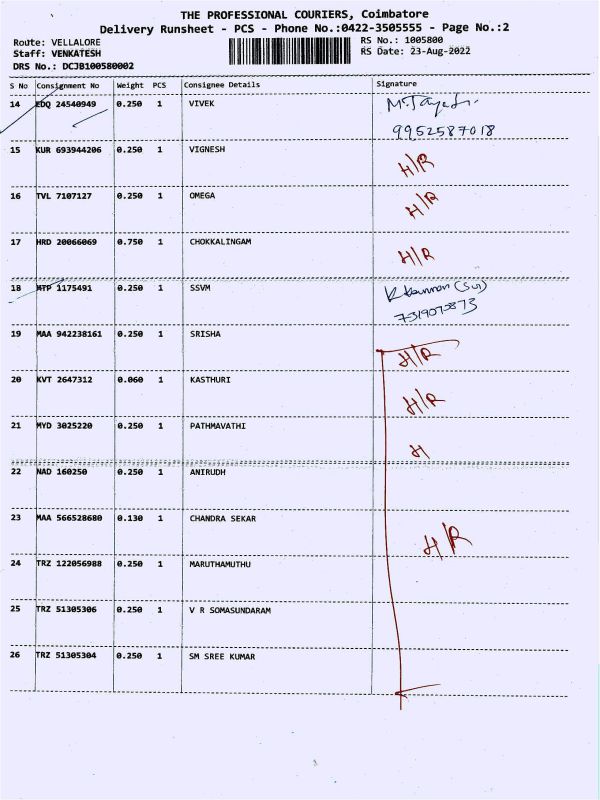 THE PROFESSIONAL COURIERS, Coimbatore
Delivery Runsheet - PCS - Phone No.:0422-3505555 - Page No.:2
Route: VELLALORE
RS No.: 1005800
Staff: VENKATESH
RS Date: 23-Aug-2022
DRS No.: DCJB100580002
S No Consignment No Weight PCS Consignee Details Signature
14 EDQ 24540949 0.250 1 VIVEK
9952587018
15 KUR 693944206 0.250 1 VIGNESH H/R
16 TVL 7107127 0.250 1 OMEGA H/R
17 HRD 20066069 0.750 1 CHOKKALINGAM H/R
18 MTP 1175491 0.250 1 SSVM
19 MAA 942238161 0.250 1 SRISHA H/R
20 KVT 2647312 0.060 1 KASTHURI H/R
21 MYD 3025220 0.250 1 PATHMAVATHI H
22 NAD 160250 0.250 1 ANIRUDH
23 MAA 566528680 0.130 1 CHANDRA SEKAR H/R
24 TRZ 122056988 0.250 1 MARUTHAMUTHU
25 TRZ 51305306 0.250 1 V R SOMASUNDARAM
26 TRZ 51305304 0.250 1 SM SREE KUMAR